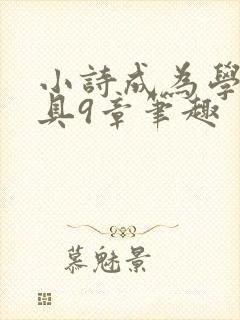 小詩成為學
具9章筆趣
慕魅景